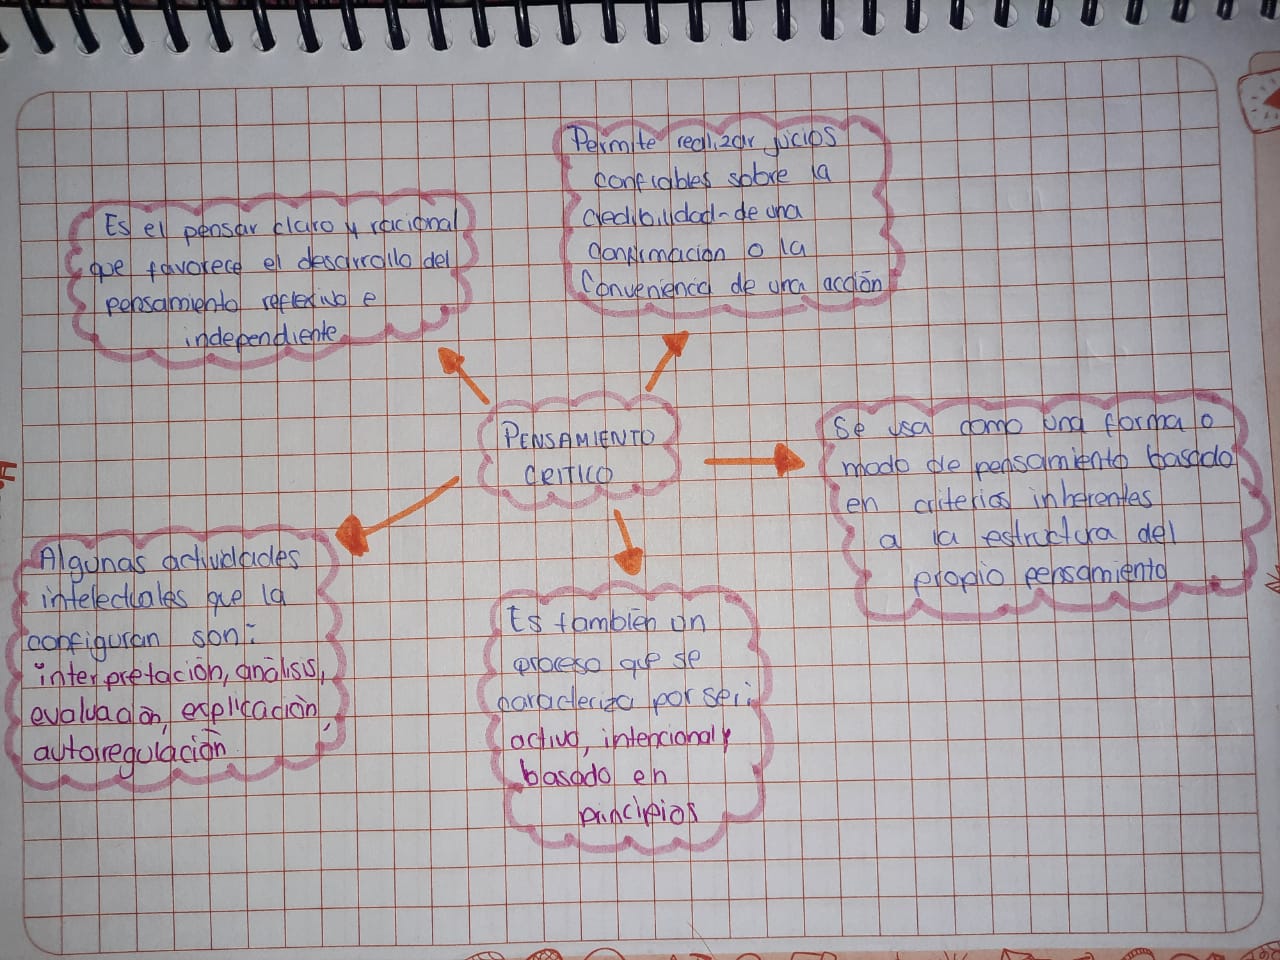 Permite realizar jucios
confiables sobre la
credibilidad-de una
confirmacion o la
Conveniencia de una acción
Es el pensar claro y racional
que favorece el desarrollo del
pensamiento reflexivo e
independiente
PENSAMIENTO
CRITICO
Se usa como una forma o
modo de pensamiento basado
en criterios inherentes
a la estructura del
propio pensamiento
Algunas actividades
intelectuales que la
configuran son:
interpretación, análisis,
evaluación, explicación,
autorregulación
Es también un
proceso que se
caracteriza por ser:
activo, intencional y
basado en
principios